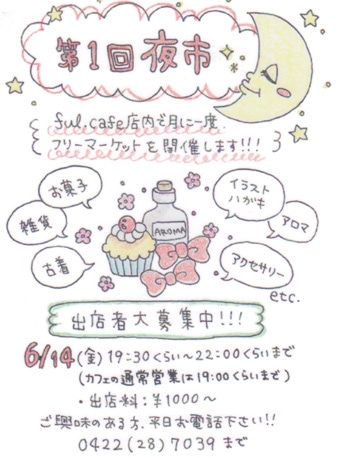 第1回夜市
ful.cafe店内で月に一度
フリーマーケットを開催します!!!
お菓子
雑貨
古着
イラスト
ハガキ
アロマ
アクセサリー
etc.
AROMA
出店者大募集中!!!
6/14(金)19:30くらい〜22:00くらいまで
(カフェの通常営業は19:00くらいまで)
・出店料:¥1000〜
ご興味のある方、平日お電話下さい!!
0422(28)7039まで